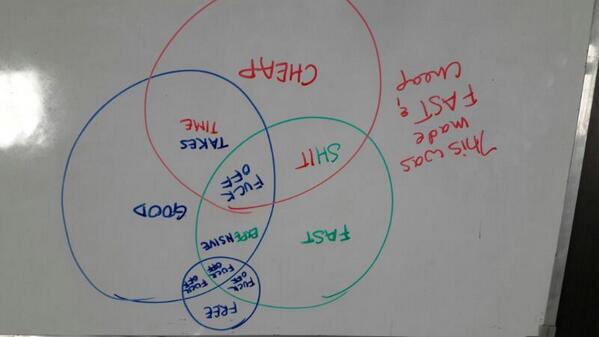 FREE
FUCK
OFF
FUCK
OFF
FUCK
OFF
EXPENSIVE
FAST
GOOD
FUCK
OFF
This was
made
FAST &
cheap
SHIT
TAKES
TIME
CHEAP